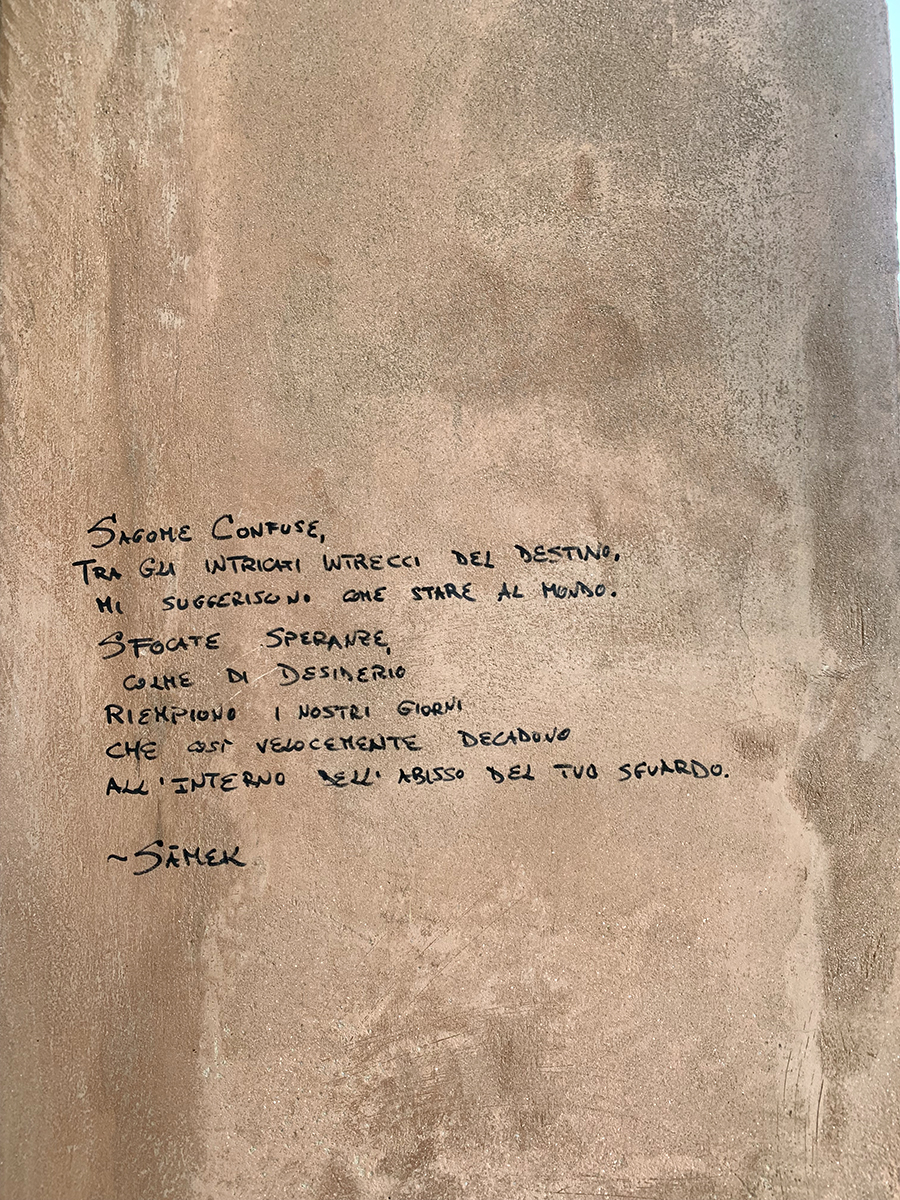 SAGOME CONFUSE,
TRA GLI INTRICATI INTRECCI DEL DESTINO,
MI SUGGERISCONO COME STARE AL MONDO.
SFOCATE SPERANZE,
COLME DI DESIDERIO
RIEMPIONO I NOSTRI GIORNI
CHE COSÌ VELOCEMENTE DECADONO
ALL'INTERNO DELL'ABISSO DEL TUO SGUARDO.
~SĀMEK